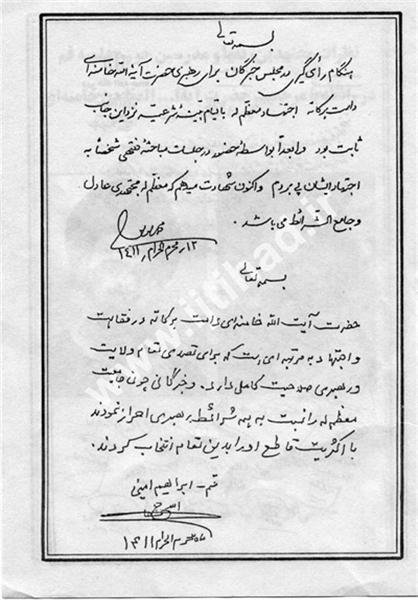 بسمه تعالی
هنگام رأی‌گیری در مجلس خبرگان برای رهبری حضرت آیة الله خامنه‌ای
دامت برکاته اجتهاد معظم له با قیام بینه شرعیه نزد این جانب
ثابت بود و بعداً بواسطه حضور در جلسات مباحثه فقهی شخصاً به
اجتهاد ایشان پی بردم و اکنون شهادت میدهم که معظم له مجتهدی عادل
و جامع الشرائط می باشد.
۱۲ محرم الحرام ۱۴۱۱
بسمه تعالی
حضرت آیت الله خامنه‌ای دامت برکاته در فقاهت
و اجتهاد به مرتبه‌ای است که برای تصدی مقام ولایت
و رهبری صلاحیت کامل دارد. و خبرگانی چون جامعیت
معظم له را نسبت به همه شرائط رهبری احراز نمودند
با اکثریت قاطع او را بدین مقام انتخاب کردند.
قم - ابراهیم امینی
محرم الحرام ۱۴۱۱
www.ijtihad.ir